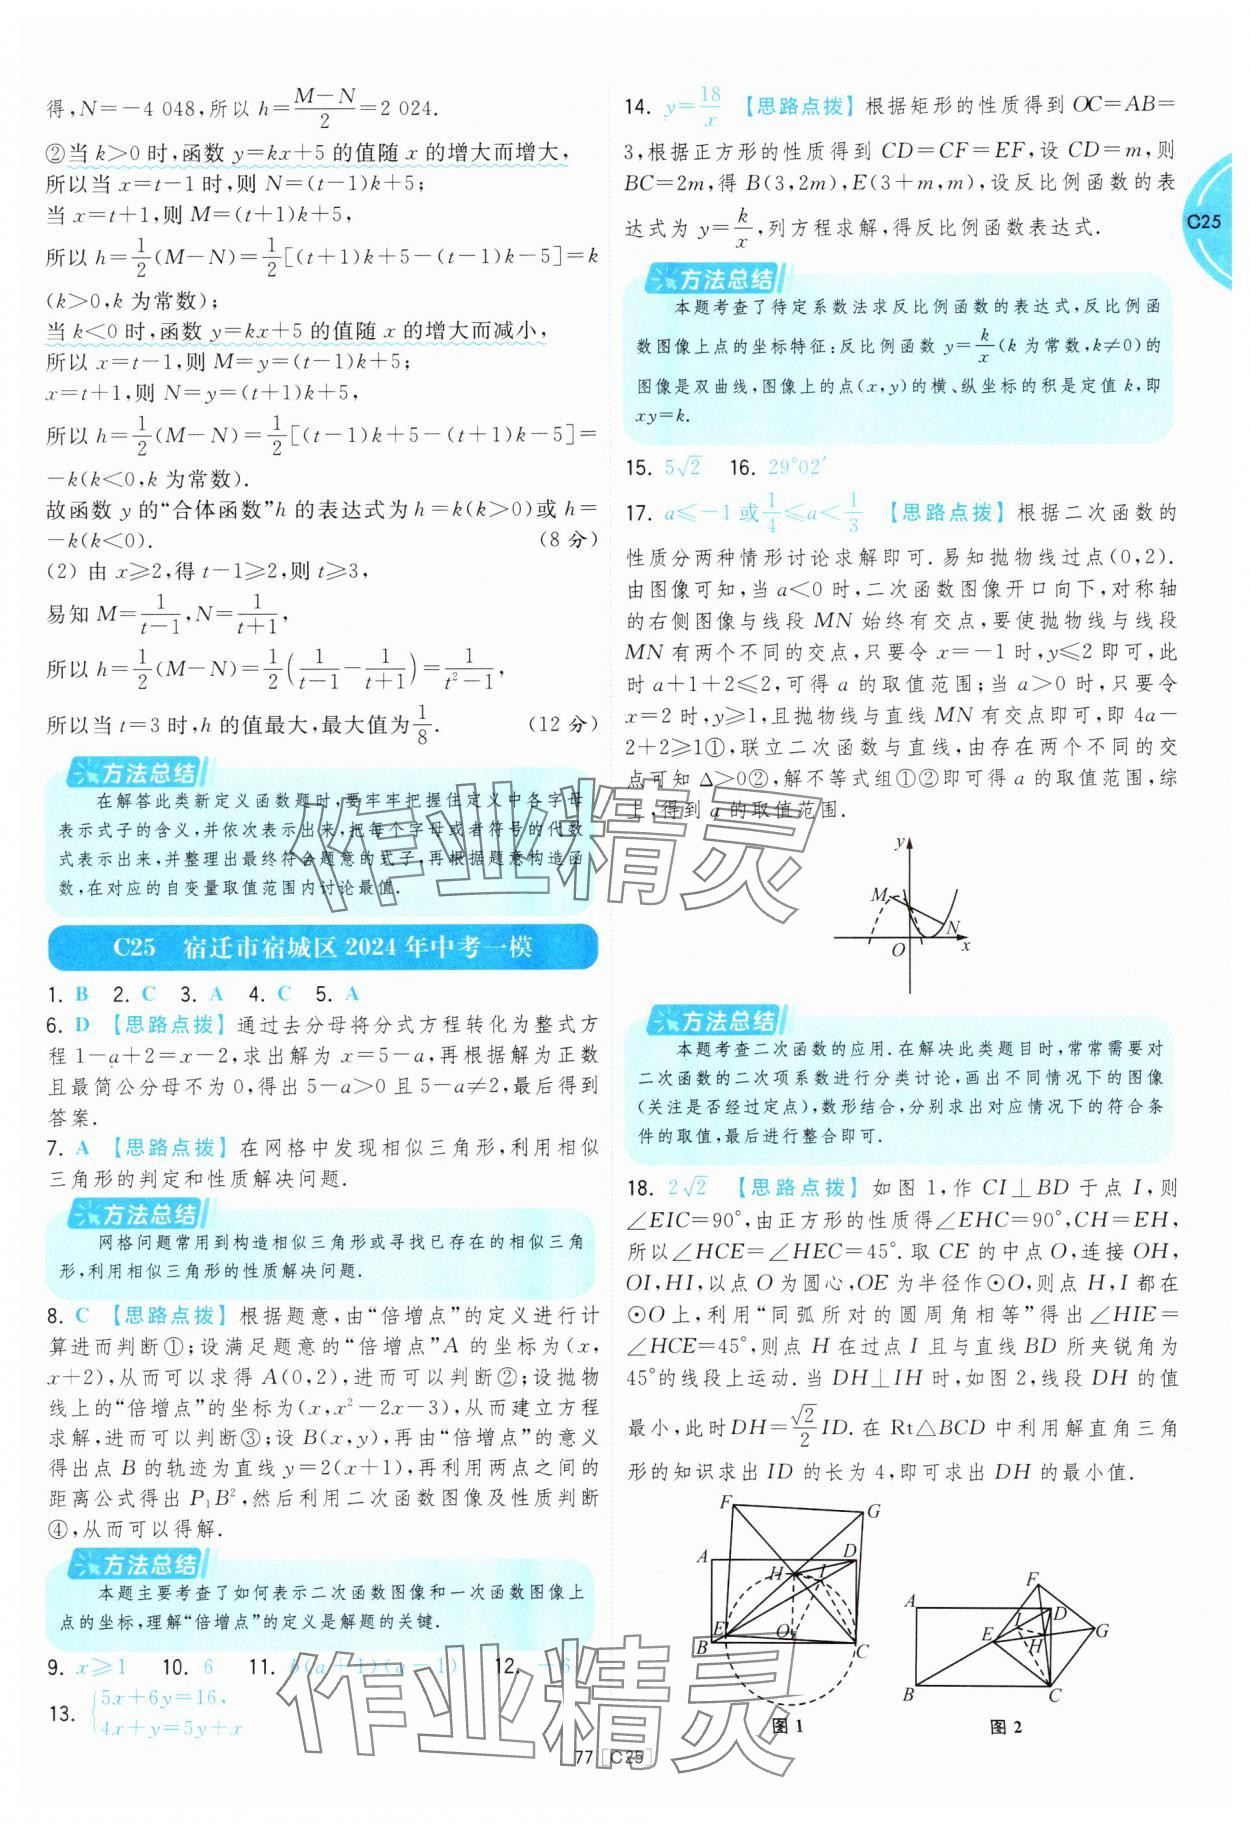 得,N=-4 048,所以 h=\frac{M-N}{2}=2 024.
②当 k>0 时,函数 y=kx+5 的值随 x 的增大而增大,
所以当 x=t-1 时,则 N=(t-1)k+5;
当 x=t+1,则 M=(t+1)k+5,
所以 h=\frac{1}{2}(M-N)=\frac{1}{2}[(t+1)k+5-(t-1)k-5]=k
(k>0,k 为常数);
当 k<0 时,函数 y=kx+5 的值随 x 的增大而减小,
所以 x=t-1,则 M=y=(t-1)k+5;
x=t+1,则 N=y=(t+1)k+5,
所以 h=\frac{1}{2}(M-N)=\frac{1}{2}[(t-1)k+5-(t+1)k-5]=
-k(k<0,k 为常数).
故函数 y 的“合体函数”h 的表达式为 h=k(k>0)或 h=
-k(k<0). (8 分)
(2) 由 x≥2,得 t-1≥2,则 t≥3,
易知 M=\frac{1}{t-1},N=\frac{1}{t+1},
所以 h=\frac{1}{2}(M-N)=\frac{1}{2}(\frac{1}{t-1}-\frac{1}{t+1})=\frac{1}{t²-1},
所以当 t=3 时,h 的值最大,最大值为\frac{1}{8}. (12 分)
方法总结
在解答此类新定义函数题时,要牢牢把握住定义中各字母
表示式子的含义,并依次表示出来,把每个字母或者符号的代数
式表示出来,并整理出最终符合题意的式子,再根据题意构造函
数,在对应的自变量取值范围内讨论最值.
C25 宿迁市宿城区 2024 年中考一模
1. B 2. C 3. A 4. C 5. A
6. D 【思路点拨】通过去分母将分式方程转化为整式方
程 1-a+2=x-2,求出解为 x=5-a,再根据解为正数
且最简公分母不为 0,得出 5-a>0 且 5-a≠2,最后得到
答案.
7. A 【思路点拨】在网格中发现相似三角形,利用相似
三角形的判定和性质解决问题.
方法总结
网格问题常用到构造相似三角形或寻找已存在的相似三角
形,利用相似三角形的性质解决问题.
8. C 【思路点拨】根据题意,由“倍增点”的定义进行计
算进而判断①;设满足题意的“倍增点”A 的坐标为(x,
x+2),从而可以求得 A(0,2),进而可以判断②;设抛物
线上的“倍增点”的坐标为(x,x²-2x-3),从而建立方程
求解,进而可以判断③;设 B(x,y),再由“倍增点”的意义
得出点 B 的轨迹为直线 y=2(x+1),再利用两点之间的
距离公式得出 P₁B²,然后利用二次函数图像及性质判断
④,从而可以得解.
方法总结
本题主要考查了如何表示二次函数图像和一次函数图像上
点的坐标,理解“倍增点”的定义是解题的关键.
9. x≥1 10. 6 11. b(a+1)(a-1) 12. -6
13. {5x+6y=16,
4x+y=5y+x
14. y=\frac{18}{x} 【思路点拨】根据矩形的性质得到 OC=AB=
3,根据正方形的性质得到 CD=CF=EF,设 CD=m,则
BC=2m,得 B(3,2m),E(3+m,m),设反比例函数的表
达式为 y=\frac{k}{x},列方程求解,得反比例函数表达式.
方法总结
本题考查了待定系数法求反比例函数的表达式,反比例函
数图像上点的坐标特征:反比例函数 y=\frac{k}{x}(k 为常数,k≠0)的
图像是双曲线,图像上的点(x,y)的横、纵坐标的积是定值 k,即
xy=k.
15. 5√2 16. 29°02′
17. a≤-1 或\frac{1}{4}≤a<\frac{1}{3} 【思路点拨】根据二次函数的
性质分两种情形讨论求解即可.易知抛物线过点(0,2).
由图像可知,当 a<0 时,二次函数图像开口向下,对称轴
的右侧图像与线段 MN 始终有交点,要使抛物线与线段
MN 有两个不同的交点,只要令 x=-1 时,y≤2 即可,此
时 a+1+2≤2,可得 a 的取值范围;当 a>0 时,只要令
x=2 时,y≥1,且抛物线与直线 MN 有交点即可,即 4a-
2+2≥1①,联立二次函数与直线,由存在两个不同的交
点可知 Δ>0②,解不等式组①②即可得 a 的取值范围,综
上,得到 a 的取值范围.
y
M
N
O
x
方法总结
本题考查二次函数的应用.在解决此类题目时,常常需要对
二次函数的二次项系数进行分类讨论,画出不同情况下的图像
(关注是否经过定点),数形结合,分别求出对应情况下的符合条
件的取值,最后进行整合即可.
18. 2√2 【思路点拨】如图 1,作 CI⊥BD 于点 I,则
∠EIC=90°,由正方形的性质得∠EHC=90°,CH=EH,
所以∠HCE=∠HEC=45°.取 CE 的中点 O,连接 OH,
OI,HI,以点 O 为圆心,OE 为半径作⊙O,则点 H,I 都在
⊙O 上,利用“同弧所对的圆周角相等”得出∠HIE=
∠HCE=45°,则点 H 在过点 I 且与直线 BD 所夹锐角为
45°的线段上运动.当 DH⊥IH 时,如图 2,线段 DH 的值
最小,此时DH=\frac{√2}{2}ID.在 Rt△BCD 中利用解直角三角
形的知识求出 ID 的长为 4,即可求出 DH 的最小值.
F G A D H I E O B C
图 1
A F D I G E H B C
图 2
C25
77 C25
作业精灵
作业精灵